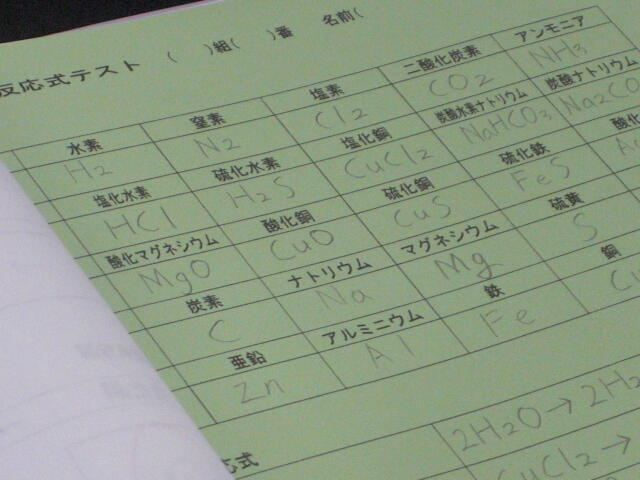 反応式テスト ( )組( )番 名前(
水素 窒素 塩素 二酸化炭素 アンモニア
H2 N2 Cl2 CO2 NH3
塩化水素 硫化水素 塩化銅 炭酸水素ナトリウム 炭酸ナトリウム
HCl H2S CuCl2 NaHCO3 Na2CO
酸化マグネシウム 酸化銅 硫化銅 硫化鉄 酸化
MgO CuO CuS FeS
炭素 ナトリウム マグネシウム 硫黄
C Na Mg S
亜鉛 アルミニウム 鉄 銅
Zn Al Fe
応式
2H2O→2H2
CuCl2→